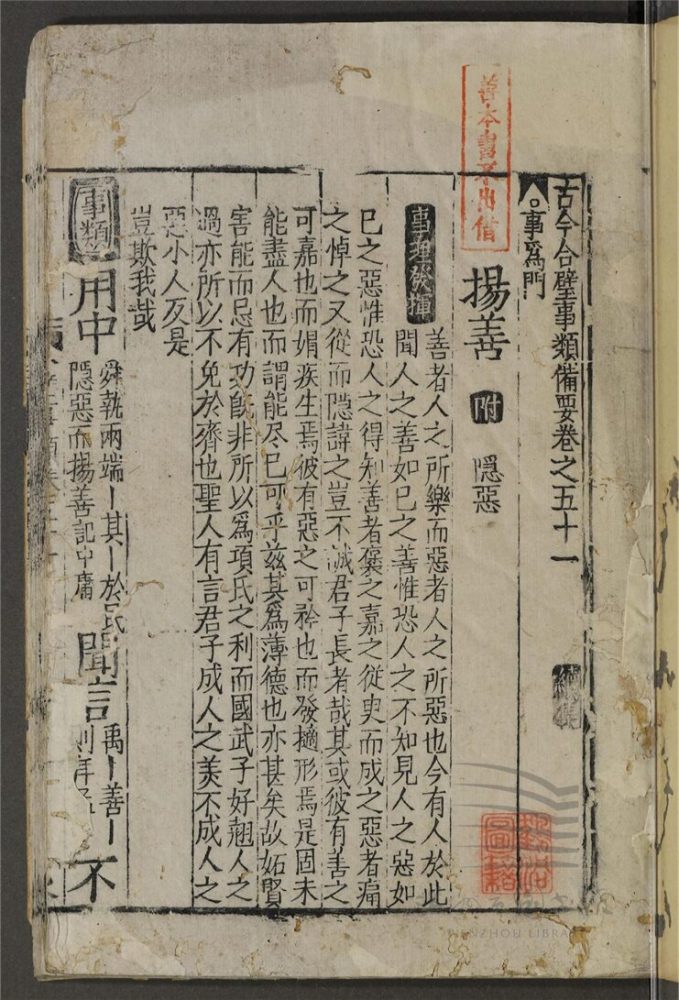 古今合璧事類備要卷之五十一 續集
事爲門
善本書不出借
揚善 附 隱惡
事理發揮 善者人之所樂而惡者人之所惡也今有人於此
聞人之善如已之善惟恐人之不知見人之惡如
已之惡惟恐人之得知善者褒之嘉之從臾而成之惡者痛
之悼之又從而隱諱之豈不誠君子長者哉其或彼有善之
可嘉也而媢疾生焉彼有惡之可矜也而發擿形焉是固未
能盡人也而謂能尽已可乎兹其爲薄德也亦甚矣故妬賢
害能而忌有功旣非所以爲項氏之利而國武子好翹人之
過亦所以不免於齊也聖人有言君子成人之美不成人之
惡小人反是
豈欺我哉
事類 用中 舜執兩端丨其丨於民
隱惡而揚善記中庸
聞言 禹丨善丨
則拜
不
圖籍
WENZHOU LIBRA